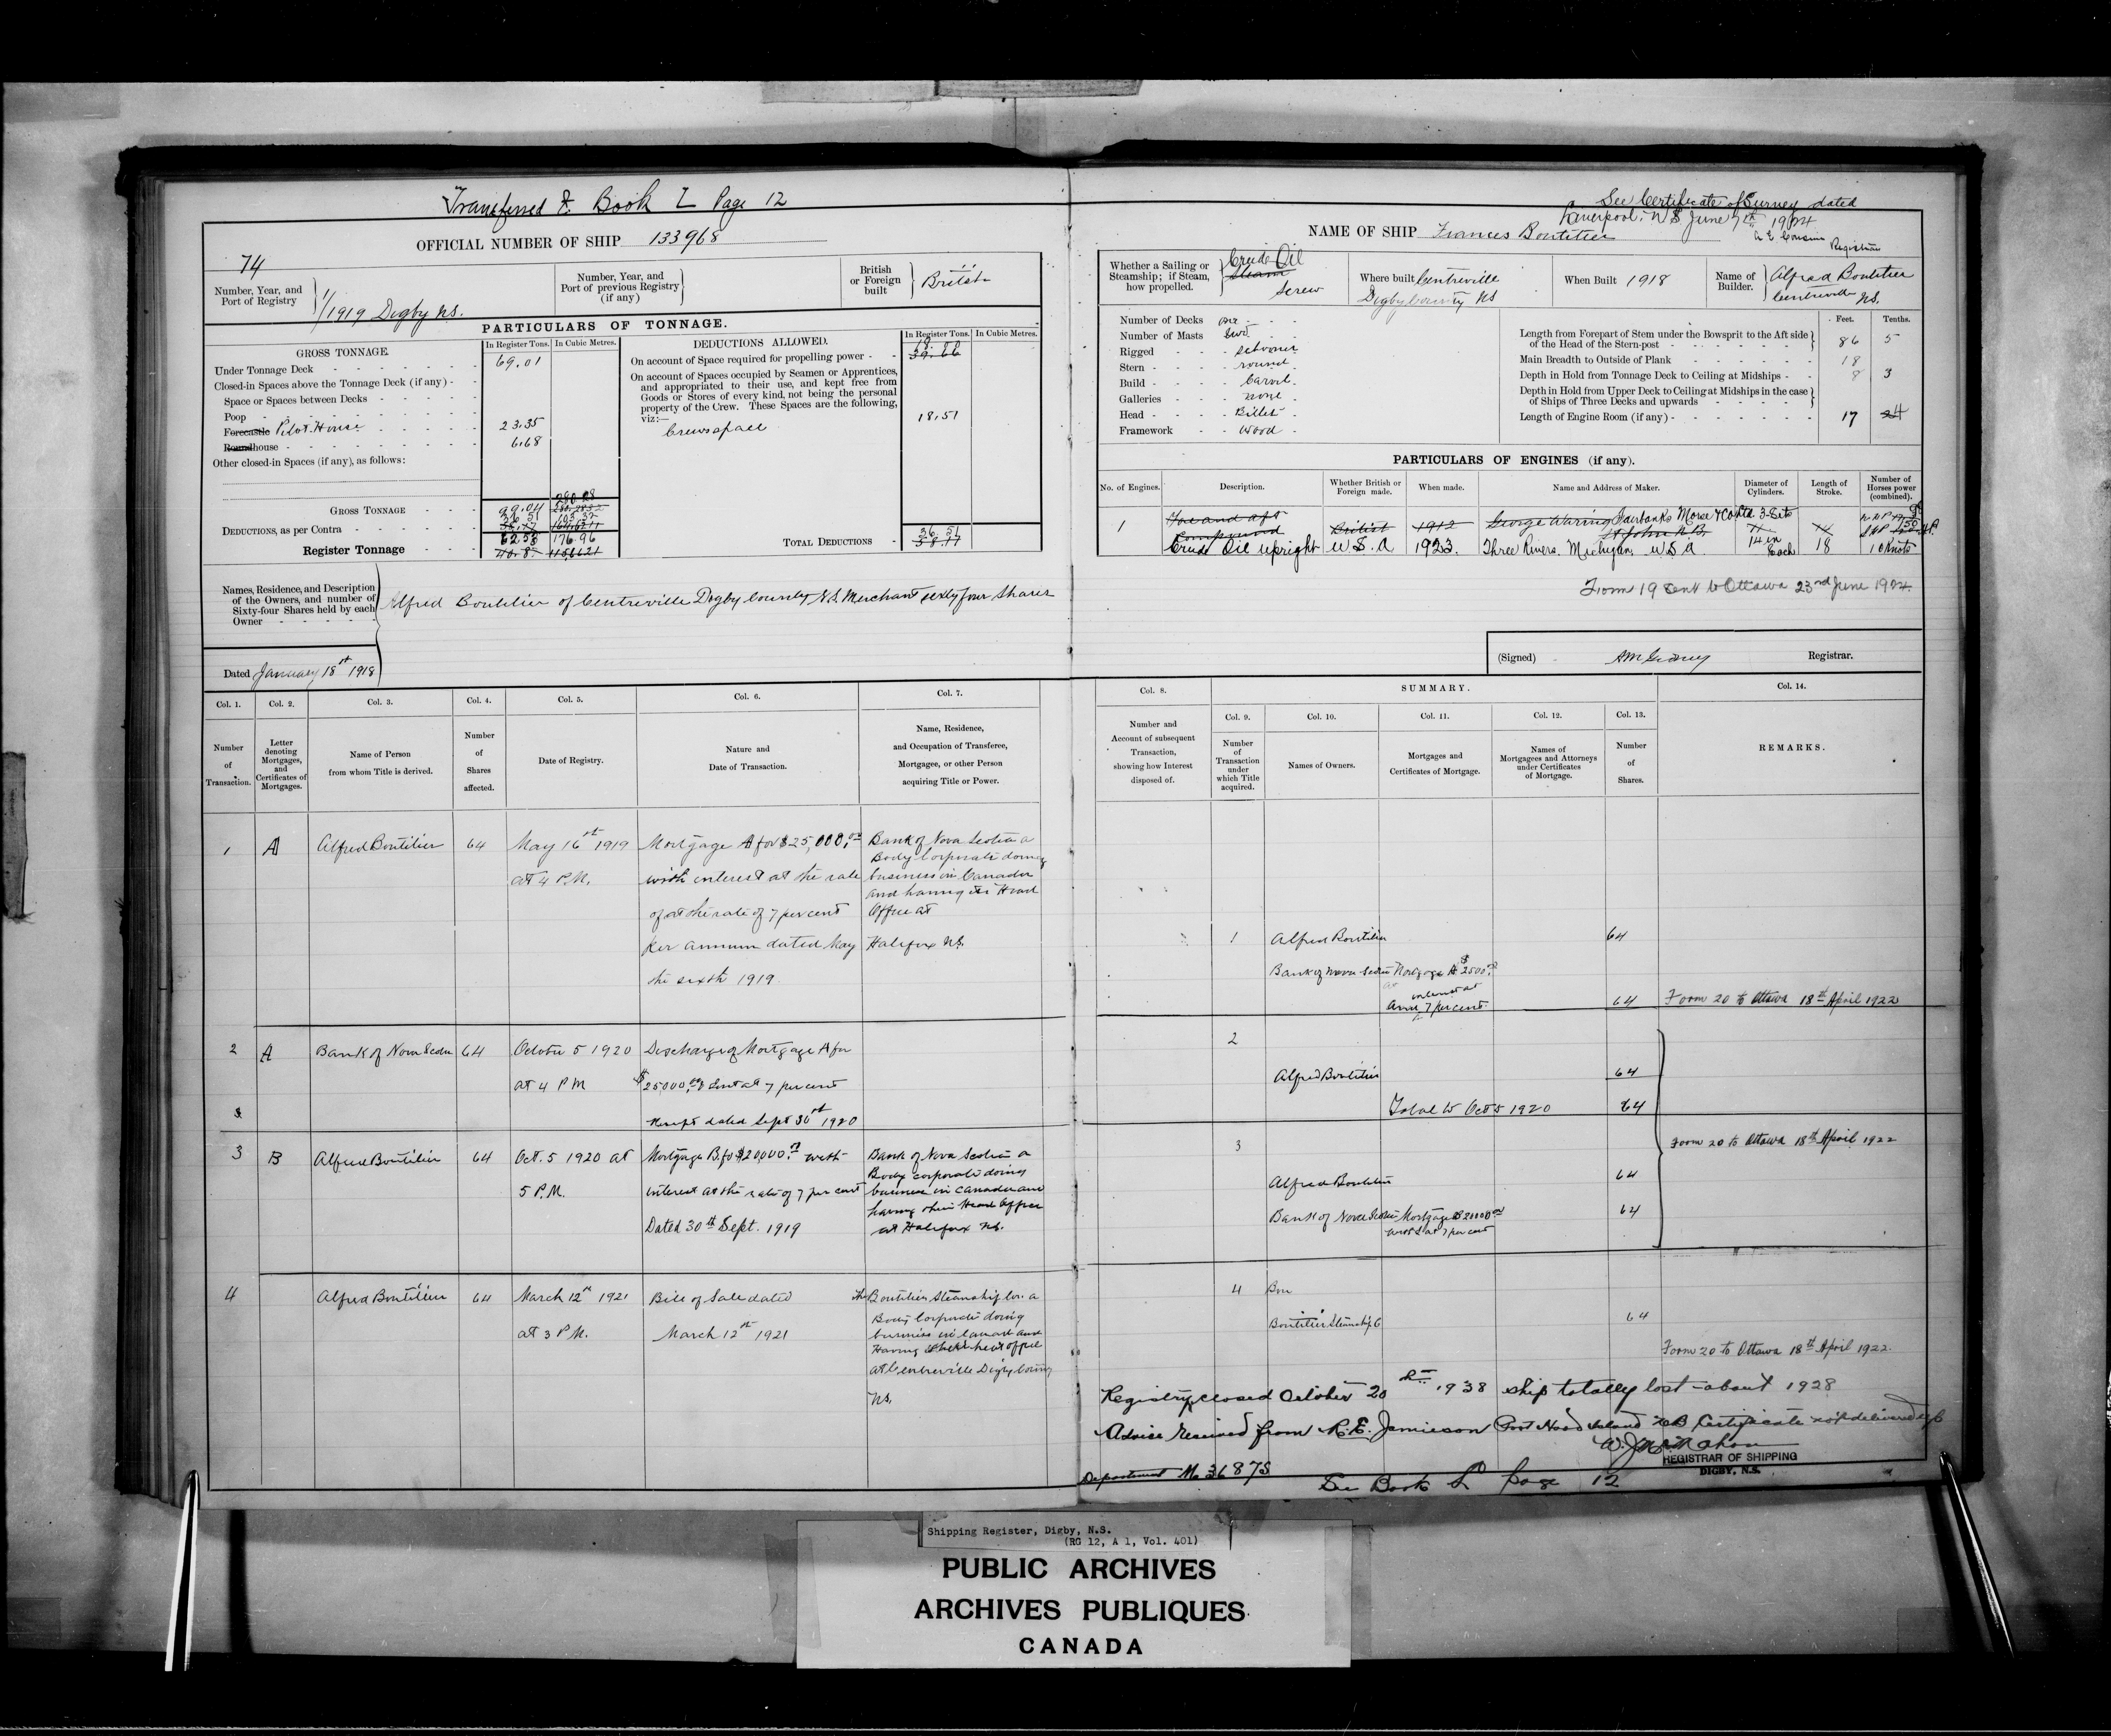 Transferred to Book L Page 12
OFFICIAL NUMBER OF SHIP 133968
74
Number, Year, and
Port of Registry
1/1919 Digby NS.
Number, Year, and
Port of previous Registry
(if any)
British
or Foreign
built
British
PARTICULARS OF TONNAGE.
GROSS TONNAGE.
In Register Tons. In Cubic Metres.
Under Tonnage Deck 69.01
Closed-in Spaces above the Tonnage Deck (if any)
Space or Spaces between Decks
Poop
Forecastle Pilot House 23.35
Roundhouse 6.68
Other closed-in Spaces (if any), as follows:
GROSS TONNAGE 99.04
DEDUCTIONS, as per Contra 36 51
Register Tonnage 62.53 176.96
DEDUCTIONS ALLOWED.
In Register Tons. In Cubic Metres.
On account of Space required for propelling power
On account of Spaces occupied by Seamen or Apprentices,
and appropriated to their use, and kept free from
Goods or Stores of every kind, not being the personal
property of the Crew. These Spaces are the following,
viz:—
Crewspace 18.51
TOTAL DEDUCTIONS 36.51
Names, Residence, and Description
of the Owners, and number of
Sixty-four Shares held by each
Owner
Alfred Boutilier of Centreville Digby County N.S. Merchant sixty four shares
Dated January 18st 1918
See Certificate of Survey dated
Liverpool, N S June 7th 1924
Registrar
NAME OF SHIP Frances Boutilier
Whether a Sailing or
Steamship; if Steam,
how propelled.
Crude Oil
Steam
Screw
Where built Centreville
Digby County NS
When Built 1918
Name of
Builder.
Alfred Boutilier
Centreville NS.
Number of Decks one
Number of Masts two
Rigged schooner
Stern round
Build Carvel
Galleries none
Head Billet
Framework Wood
Feet. Tenths.
Length from Forepart of Stem under the Bowsprit to the Aft side
of the Head of the Stern-post 86 5
Main Breadth to Outside of Plank 18
Depth in Hold from Tonnage Deck to Ceiling at Midships 8 3
Depth in Hold from Upper Deck to Ceiling at Midships in the case
of Ships of Three Decks and upwards
Length of Engine Room (if any) 17
PARTICULARS OF ENGINES (if any).
No. of Engines.
Description.
Whether British or
Foreign made.
When made.
Name and Address of Maker.
Diameter of
Cylinders.
Length of
Stroke.
Number of
Horses power
(combined).
1
Fore and aft
Compound
British 1912 George Waring
St John N.B.
Fairbanks Morse & Co Ltd
Crude Oil upright U S. A 1923. Three Rivers. Michigan, U S A. 14 in Each 18 10 Knots
Form 19 sent to Ottawa 23rd June 1924.
(Signed) Registrar.
Col. 1. Col. 2. Col. 3. Col. 4. Col. 5. Col. 6. Col. 7.
Number
of
Transaction.
Letter
denoting
Mortgages,
and
Certificates of
Mortgages.
Name of Person
from whom Title is derived.
Number
of
Shares
affected.
Date of Registry.
Nature and
Date of Transaction.
Name, Residence,
and Occupation of Transferee,
Mortgagee, or other Person
acquiring Title or Power.
Col. 8. SUMMARY. Col. 14.
Col. 9. Col. 10. Col. 11. Col. 12. Col. 13.
Number and
Account of subsequent
Transaction,
showing how Interest
disposed of.
Number
of
Transaction
under
which Title
acquired.
Names of Owners.
Mortgages and
Certificates of Mortgage.
Names of
Mortgagees and Attorneys
under Certificates
of Mortgage.
Number
of
Shares.
REMARKS.
1 A Alfred Boutilier 64 May 16st 1919
at 4 P.M.
Mortgage A for $25,000.00
with interest at the rate
of at the rate of 7 per cent
per annum dated May
the sixth 1919.
Bank of Nova Scotia a
Body Corporate doing
business in Canada
and having its Head
Office at
Halifax NS.
1 Alfred Boutilier 64
Bank of Nova Scotia Mortgage A $2500
interest at
7 per cent. 64 Form 20 to Ottawa 18th April 1922
2 A Bank of Nova Scotia 64 October 5 1920
at 4 P M
Discharge of Mortgage A for
$25000.00 & Int at 7 per cent
Receipt dated Sept 30st 1920
2
Alfred Boutilier 64
Total to Oct 5 1920 64
3 B Alfred Boutilier 64 Oct. 5 1920 at
5 P.M.
Mortgage B. for $20,000.00 with
interest at the rate of 7 per cent
Dated 30th Sept. 1919
Bank of Nova Scotia a
Body corporate doing
business in Canada and
having their Head Office
at Halifax NS.
3
Form 20 to Ottawa 18th April 1922
Alfred Boutilier 64
Bank of Nova Scotia Mortgage $20000.00 64
at 7 per cent
4 Alfred Boutilier 64 March 12st 1921
at 3 P.M.
Bill of Sale dated
March 12st 1921
the Boutilier Steamship Co. a
Body Corporate doing
business in Canada and
Having their head office
at Centreville Digby County
NS.
4 Bou
Boutilier Steamship C 64
Form 20 to Ottawa 18th April 1922.
Registry closed October 20 1938 ship totally lost about 1928
Advice received from R.E. Jamieson Port Hood Island Certificate not delivered up
REGISTRAR OF SHIPPING
DIGBY, N.S.
Department No 36875
See Book L Page 12
Shipping Register, Digby, N.S.
(RG 12, A 1, Vol. 401)
PUBLIC ARCHIVES
ARCHIVES PUBLIQUES
CANADA